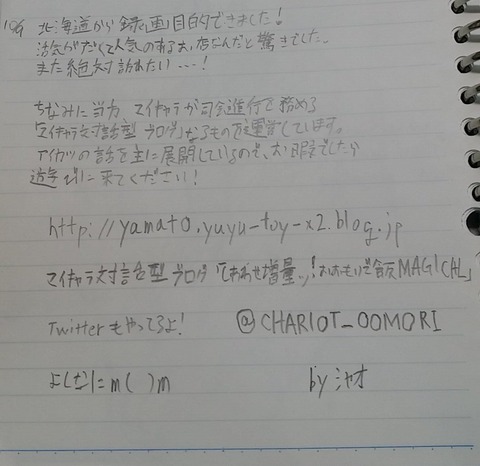 10/9 北海道から録画目的できました!
活気がだくて人気のあるお店なんだと驚きでした。
また絶対訪れたい…!
ちなみに当方、マイキャラが司会進行を務める
「マイキャラ対話型ブログ」なるものを運営しています。
アイカツの話を主に展開しているので、お暇でしたら
遊びに来てください!
http://yamato.yuyu-toy-x2.blog.jp
マイキャラ対話型ブログ「しあわせ増量ッ!おおもりご飯MAGICAL」
Twitterもやってるよ!　@CHARIOT_OOMORI
よしなに m( )m　by シャオ